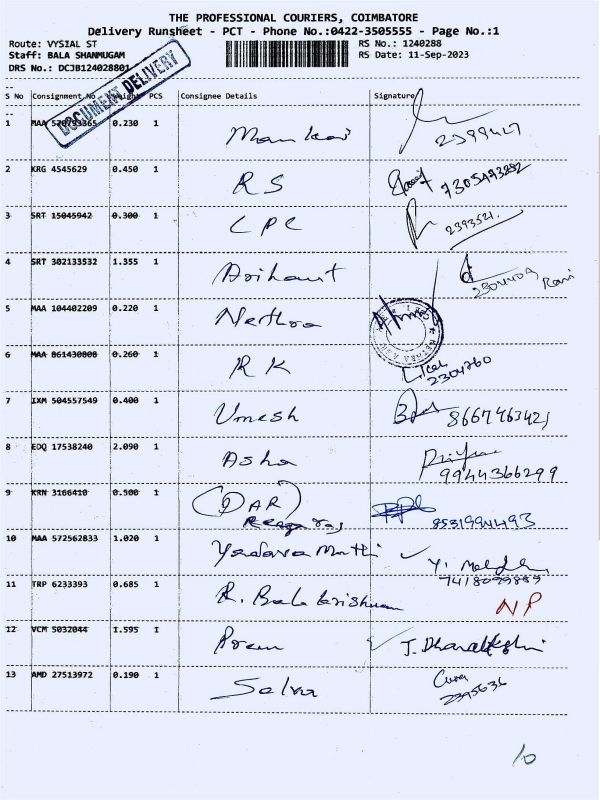 THE PROFESSIONAL COURIERS, COIMBATORE
Delivery Runsheet - PCT - Phone No.:0422-3505555 - Page No.:1
Route: VYSIAL ST RS No.: 1240288
Staff: BALA SHANMUGAM RS Date: 11-Sep-2023
DRS No.: DCJB124028801
DOCUMENT DELIVERY
S No Consignment No Weight PCS Consignee Details Signature
1 MAA 570793365 0.230 1 Manikar 2399427
2 KRG 4545629 0.450 1 RS 7305493282
3 SRT 15045942 0.300 1 CPC 2393521.
4 SRT 302133532 1.355 1 Arihant 2304409 Ravi
5 MAA 104402209 0.220 1 Nethra
6 MAA 861430808 0.260 1 RK 2304760
7 IXM 504557549 0.400 1 Umesh 8667463421
8 EDQ 17538240 2.090 1 Asha 9944366299
9 KRN 3166410 0.500 1 (DAR) 8531994493
10 MAA 572562833 1.020 1 Yadava Muthi 7418099889
11 TRP 6233393 0.685 1 R. Bala krishnan NP
12 VCM 5032044 1.595 1 Prem
13 AMD 27513972 0.190 1 Selva 2395636
10